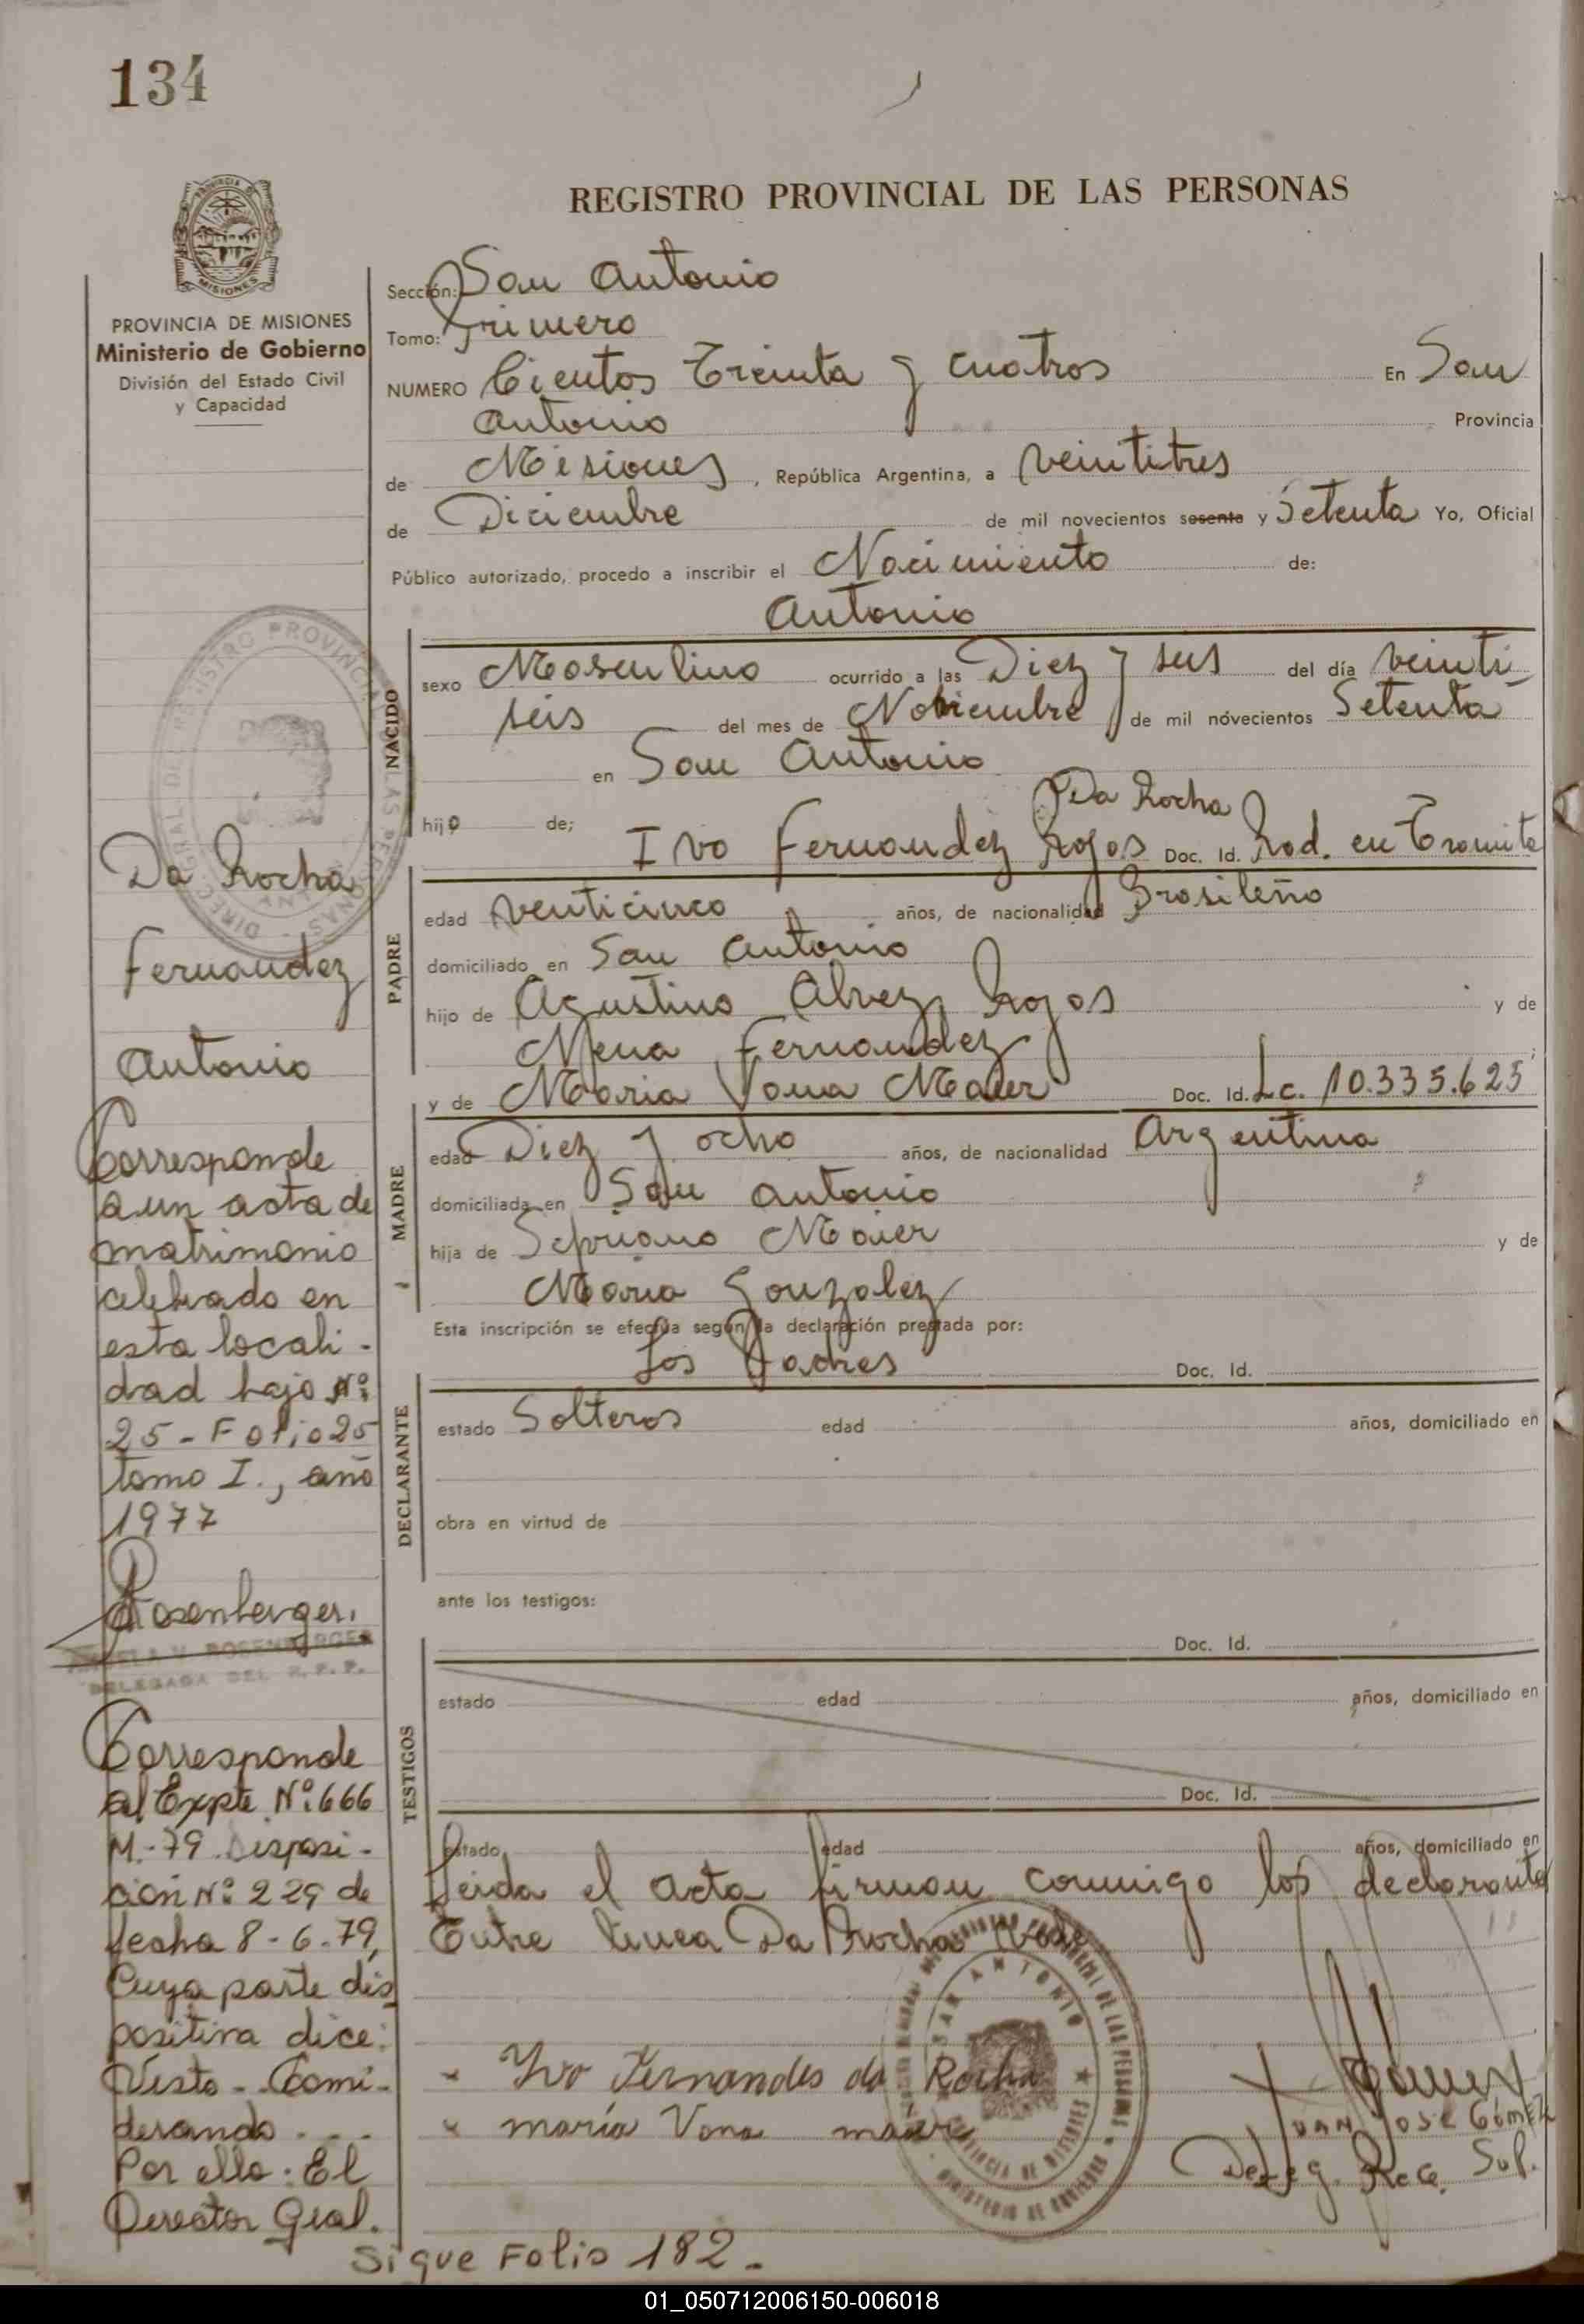 134
REGISTRO PROVINCIAL DE LAS PERSONAS
MISIONES
PROVINCIA DE MISIONES
Ministerio de Gobierno
División del Estado Civil
y Capacidad
Sección: San Antonio
Tomo: Primero
NUMERO Cientos Treinta y cuatros En San
Antonio Provincia
de Misiones, República Argentina, a veintitres
de Diciembre de mil novecientos sesenta y Setenta Yo, Oficial
Público autorizado, procedo a inscribir el Nacimiento de:
Antonio
NACIDO
sexo Masculino ocurrido a las Diez y seis del día veinti-
seis del mes de Nobiembre de mil novecientos Setenta
en San Antonio
Da Rocha
hijo de; Ivo Fernandez Rojas Doc. Id. Rad. en Tramite
PADRE
edad venticinco años, de nacionalidad Brasileño
domiciliado en San Antonio
hijo de Agustino Alvez Rojas y de
Mena Fernandez
y de Maria Vona Maier Doc. Id. Lc. 10.335.625
MADRE
edad Diez y ocho años, de nacionalidad Argentina
domiciliada en San Antonio
hija de Sepriano Maier y de
Maria Gonzalez
Esta inscripción se efectúa según la declaración prestada por:
Los Padres Doc. Id.
DECLARANTE
estado Solteros edad años, domiciliado en
obra en virtud de
ante los testigos:
Doc. Id.
TESTIGOS
estado edad años, domiciliado en
Doc. Id.
estado edad años, domiciliado en
Leida el acta firman conmigo los declarante
Entre linea Da Rocha Vale
Ivo Fernandes da Rocha
maría Vona maier
JUAN JOSE GÓMEZ
Deleg. Sup.
SAN ANTONIO
Da Rocha
Fernandez
Antonio
Corresponde
a un acta de
matrimonio
celebrado en
esta locali-
dad bajo Nº
25-Folio 25
tomo I., año
1977
Rosenberger.
ROSENBERGER
DELEGADA DEL R.P.P.
Corresponde
al Expte Nº 666
M.-79. Disposi-
ción Nº 229 de
fecha 8-6-79,
Cuya parte dis
positiva dice:
Visto - Consi-
derando...
Por ello: El
Director Gral.
Sigue Folio 182.-
01_050712006150-006018